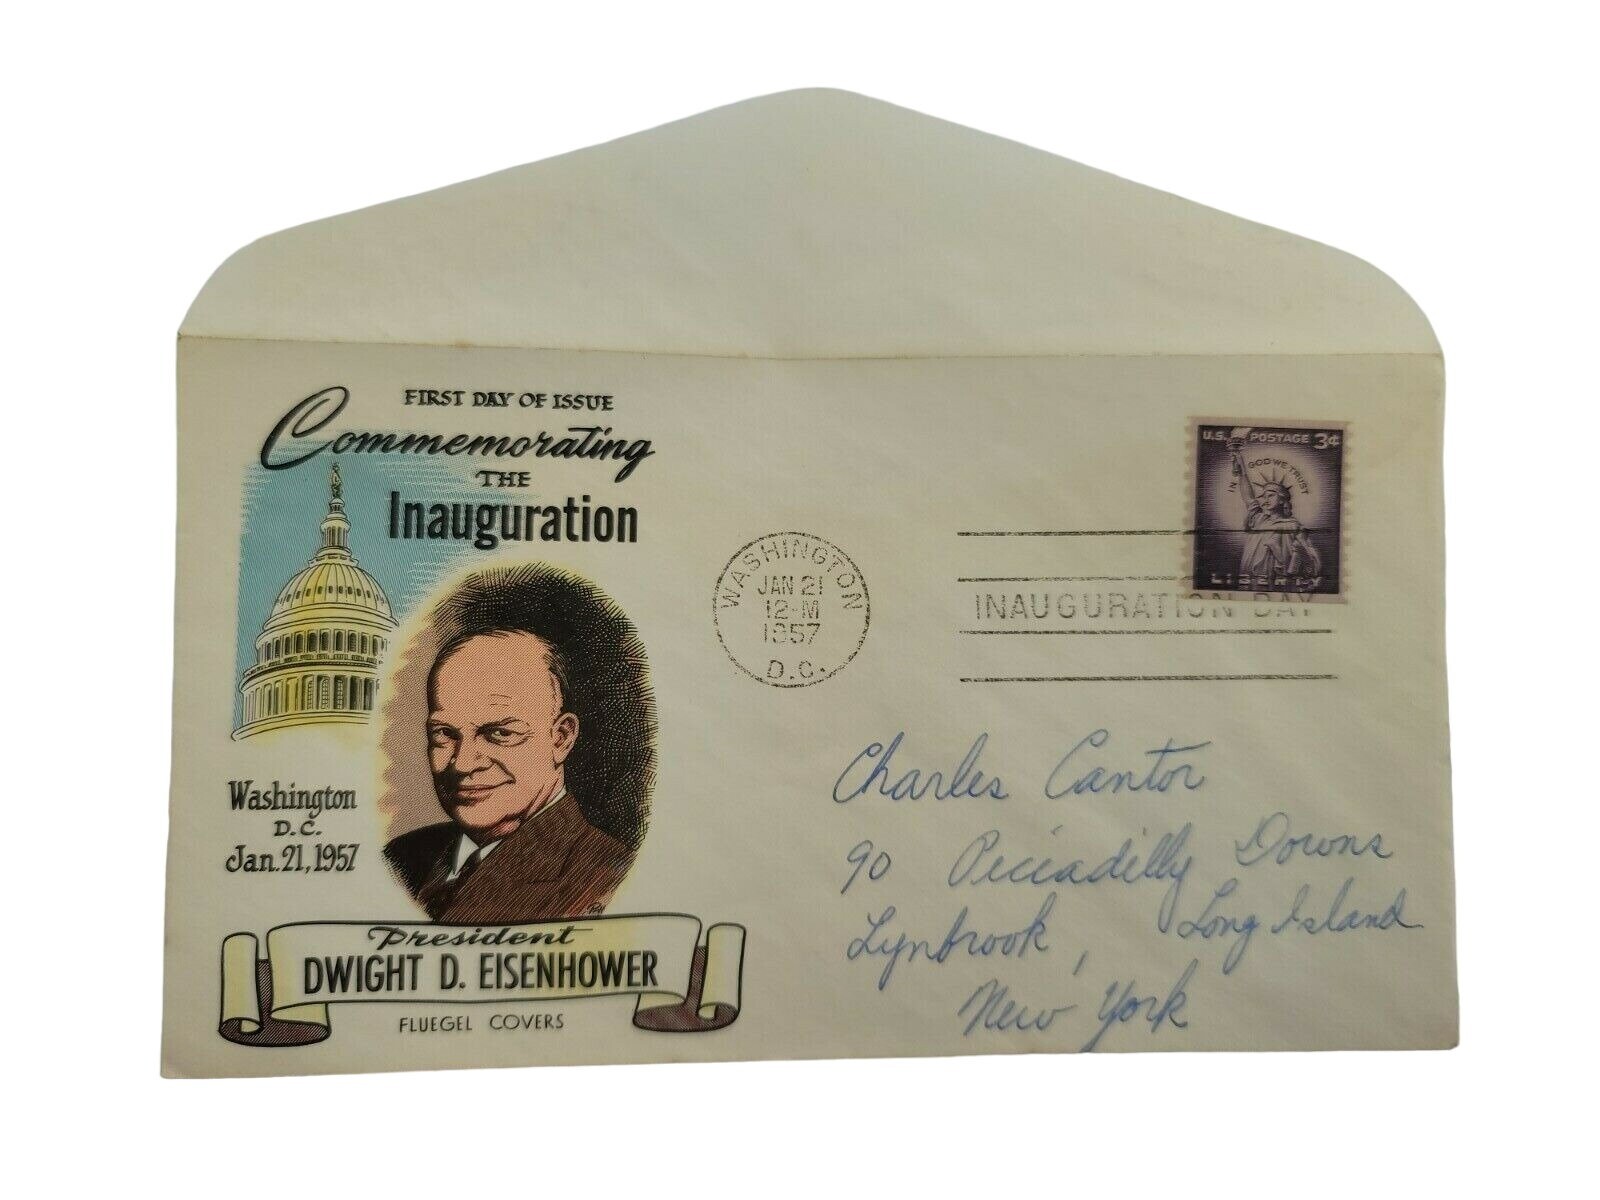 FIRST DAY OF ISSUE
Commemorating
THE
Inauguration
Washington
D.C.
Jan. 21, 1957
President
DWIGHT D. EISENHOWER
FLUEGEL COVERS
WASHINGTON
JAN 21
12-M
1957
D.C.
U.S. POSTAGE 3¢
IN GOD WE TRUST
LIBERTY
INAUGURATION DAY
Charles Cantor
90 Piccadilly Downs
Lynbrook, Long Island
New York